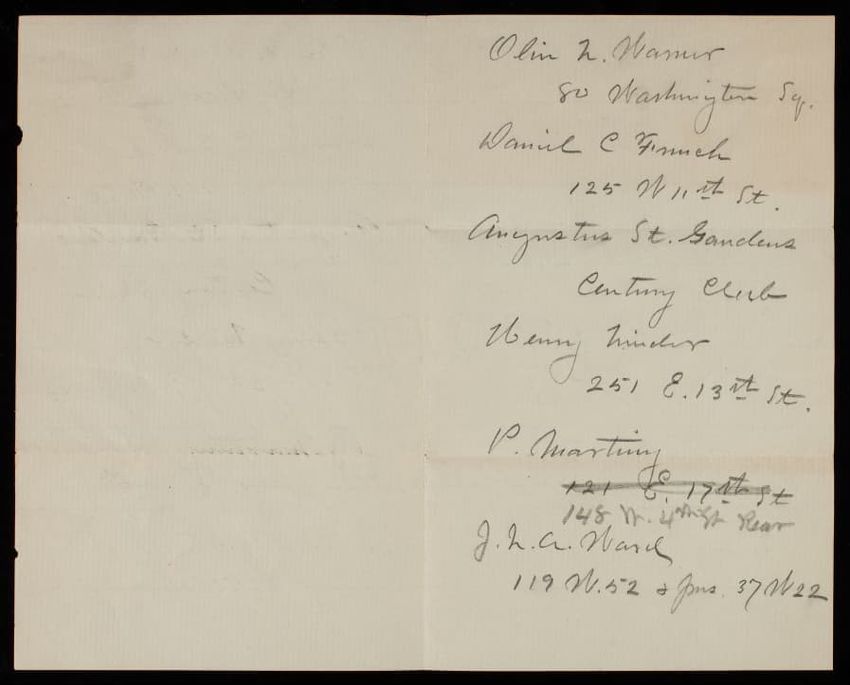 Olin L. Warner
80 Washington Sq.
Daniel C French
125 W 11th St.
Augustus St. Gaudens
Century Club
Henry Linder
251 E. 13th St.
P. Martiny
121 E. 17th St
148 W. 4th St Rear
J. Q. A. Ward
119 W. 52 & 37 W 22